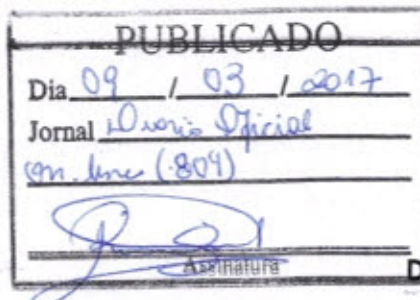 PUBLICADO
Dia 09 / 03 / 2017
Jornal Diario Oficial
on line (804)
Assinatura
D